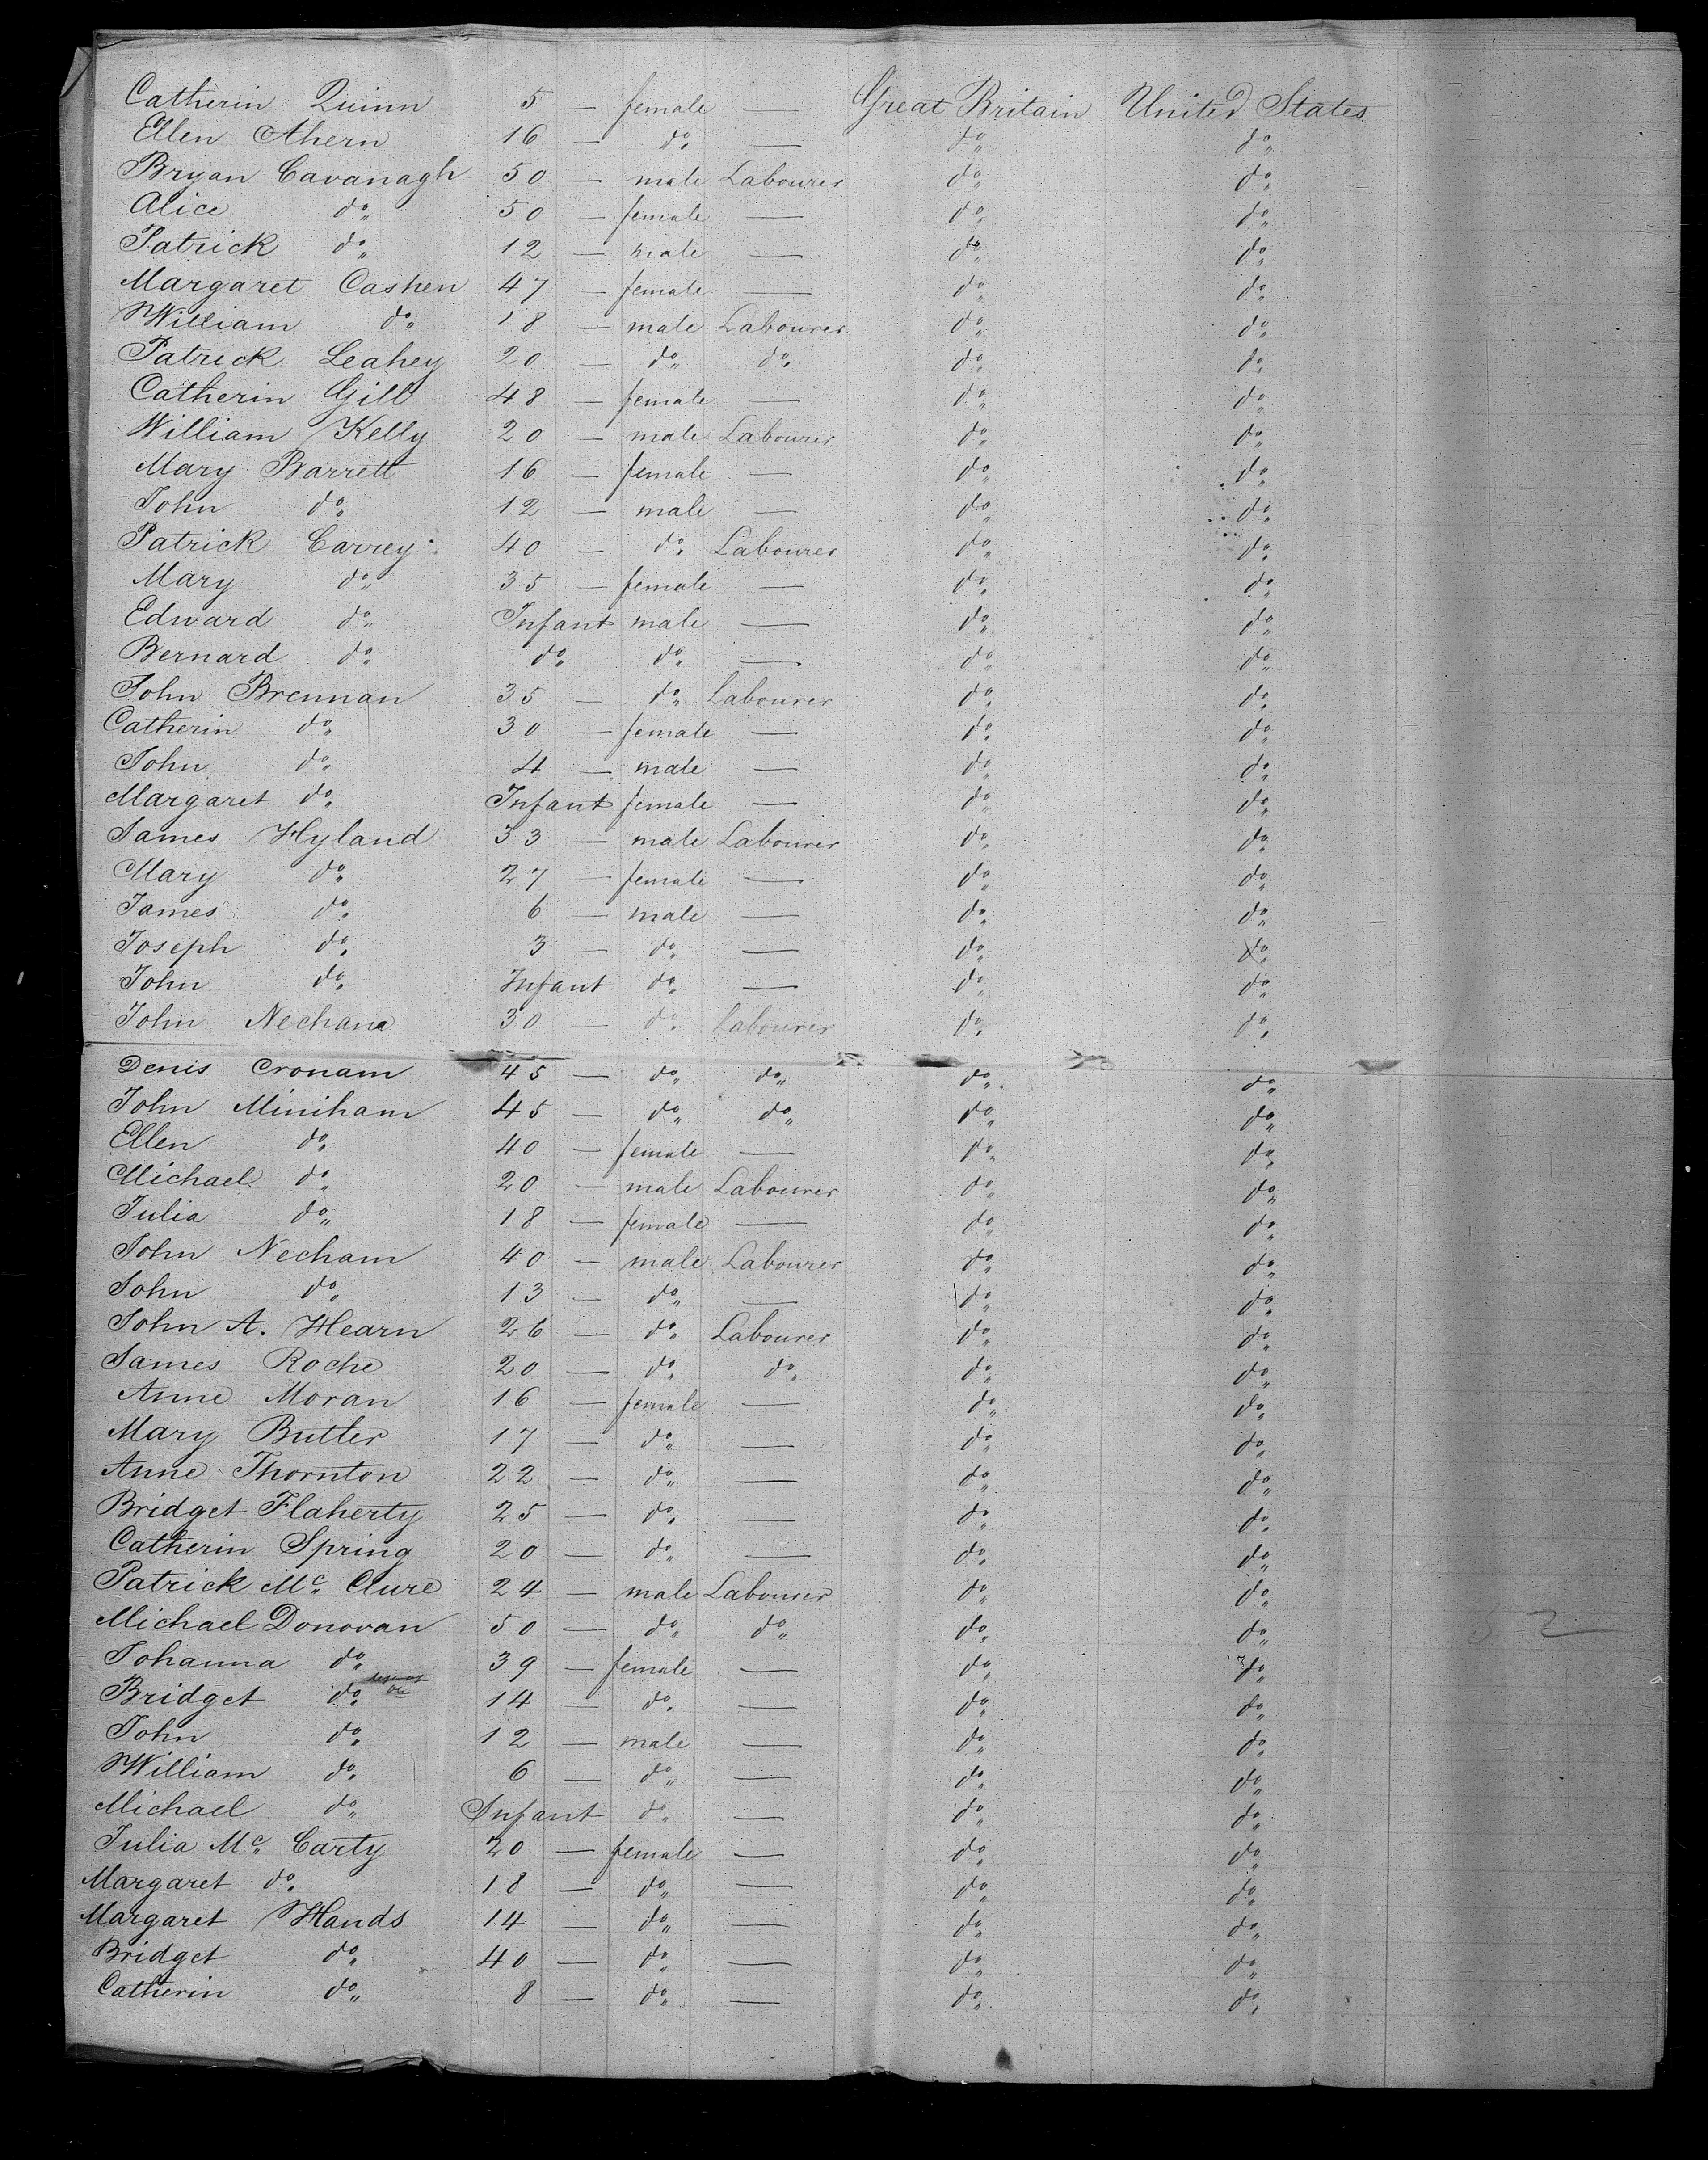 Catherin Quinn 5 — female — Great Britain United States
Ellen Ahern 16 — do — do do
Bryan Cavanagh 50 — male Labourer do do
Alice do 50 — female — do do
Patrick do 12 — male — do do
Margaret Cashen 47 — female — do do
William do 18 — male Labourer do do
Patrick Leahey 20 — do do do do
Catherin Gill 48 — female — do do
William Kelly 20 — male Labourer do do
Mary Barrett 16 — female — do do
John do 12 — male — do do
Patrick Carrey 40 — do Labourer do do
Mary do 35 — female — do do
Edward do Infant male — do do
Bernard do do do — do do
John Brennan 35 — do Labourer do do
Catherin do 30 — female — do do
John do 4 — male — do do
Margaret do Infant female — do do
James Hyland 33 — male Labourer do do
Mary do 27 — female — do do
James do 6 — male — do do
Joseph do 3 — do — do do
John do Infant do — do do
John Nechana 30 — do Labourer do do
Denis Cronam 45 — do do do do
John Miniham 45 — do do do do
Ellen do 40 — female — do do
Michael do 20 — male Labourer do do
Julia do 18 — female — do do
John Necham 40 — male Labourer do do
John do 13 — do — do do
John A. Hearn 26 — do Labourer do do
James Roche 20 — do do do do
Anne Moran 16 — female — do do
Mary Butler 17 — do — do do
Anne Thornton 22 — do — do do
Bridget Flaherty 25 — do — do do
Catherin Spring 20 — do — do do
Patrick Mc Clure 24 — male Labourer do do
Michael Donovan 50 — do do do do
Johanna do 39 — female — do do
Bridget do 14 — do — do do
John do 12 — male — do do
William do 6 — do — do do
Michael do Infant do — do do
Julia Mc Carty 20 — female — do do
Margaret do 18 — do — do do
Margaret Hands 14 — do — do do
Bridget do 40 — do — do do
Catherin do 8 — do — do do